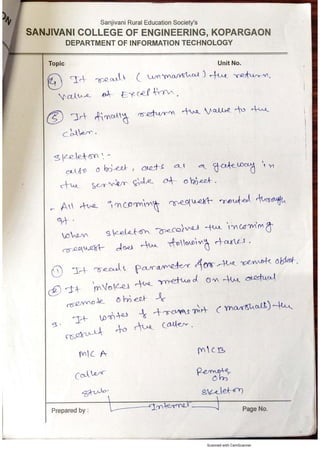 Sanjivani Rural Education Society's
SANJIVANI COLLEGE OF ENGINEERING, KOPARGAON
DEPARTMENT OF INFORMATION TECHNOLOGY
Topic Unit No.
④ It reads (unmarshal) the return
value of Exception.
⑤ It finally return the value to the
caller.
skeleton :-
object, acts as a gateway in
the server side of object.
- All the incoming request routed through
it.
When skeleton receives the incoming
request does the following tasks.
① It reads parameter for the remote object.
② It invokes the method on the actual
remote object &
3. It writes & transmit (marshall) the
result to the caller.
M/C A M/C B
Caller Remote
Obj
Stub Skeleton
Internet
Prepared by : Page No.
Scanned with CamScanner